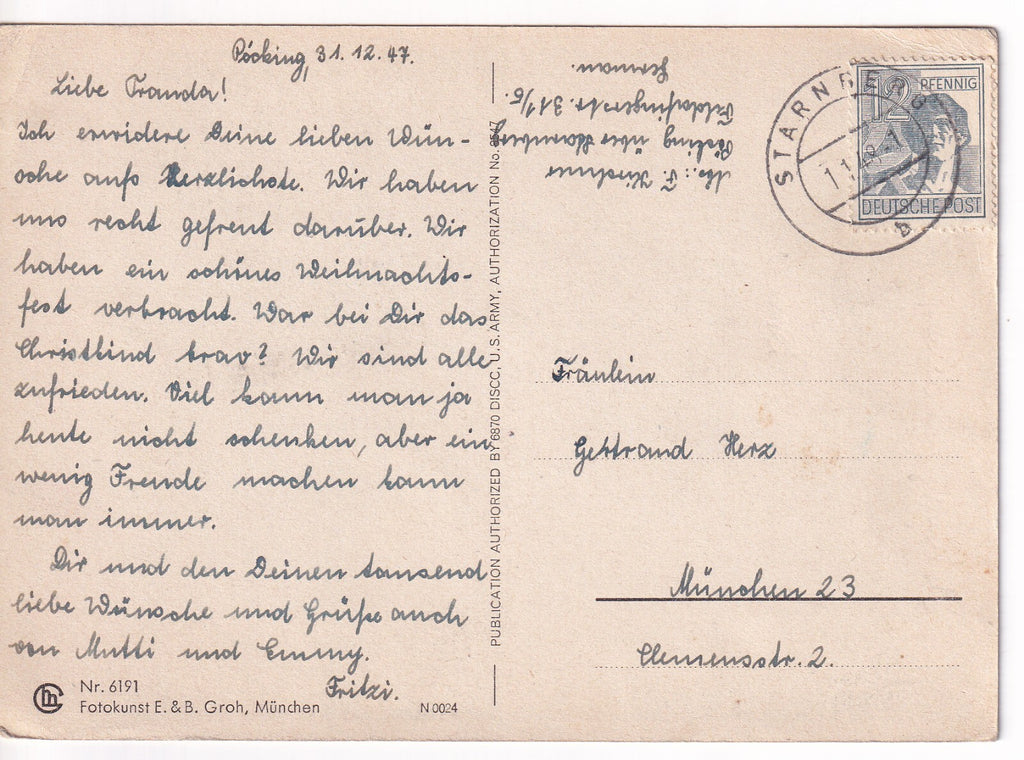 Pöcking, 31.12.47.
Liebe Tranda!
Ich erwidere Deine lieben Wün-
sche aufs Herzlichste. Wir haben
uns recht gefreut darüber. Wir
haben ein schönes Weihnachts-
fest verbracht. War bei Dir das
Christkind brav? Wir sind alle
zufrieden. Viel kann man ja
heute nicht schenken, aber ein
wenig Freude machen kann
man immer.
Dir und den Deinen tausend
liebe Wünsche und Grüße auch
von Mutti und Emmy.
Fritzi.
Nr. 6191
Fotokunst E. & B. Groh, München
N 0024
PUBLICATION AUTHORIZED BY 6870 DISCC, U.S. ARMY, AUTHORIZATION No.
Abs.: F. Kirschner
Pöcking über Starnberg
31 1/5.
12 PFENNIG
DEUTSCHE POST
STARNBERG
1.1.48.-7
b
Fräulein
Gertraud Herz
München 23
Clemensstr. 2.